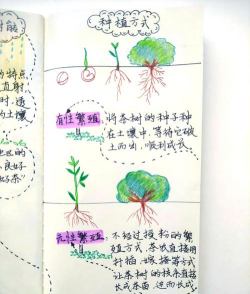 种植方式
有性繁殖:
将茶树的种子种
在土壤中,等待它破
土而出,
无性繁殖:
不经过授粉的繁
殖方式,茶农直接用
扦插、嫁接等方式
让茶树的枝来直接
长成茶苗,进而长成
的特点
直射,
时,透
土壤
良好
好茶"